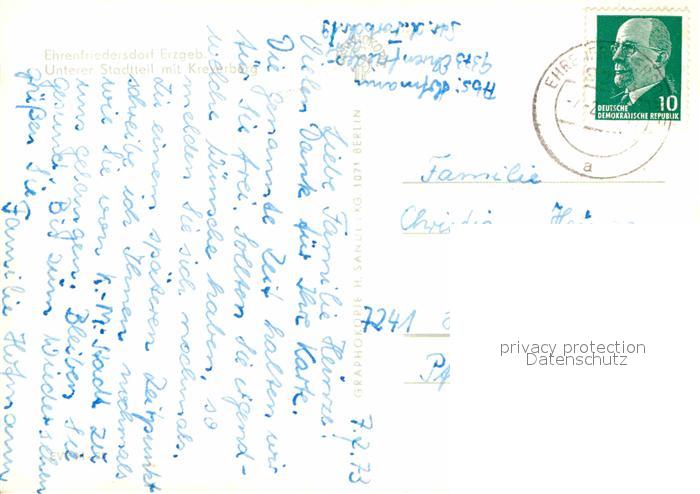 Ehrenfriedersdorf Erzgeb.
Unterer Stadtteil mit Kreyerberg
Abs: Hofmann
9373 Ehrenfrieders-
7.2.73
Liebe Familie Heinze!
Vielen Dank für Ihre Karte.
Die genannte Zeit halten wir
für Sie frei. Sollten Sie irgend-
welche Wünsche haben, so
melden Sie sich nochmals.
Zu einem späteren Zeitpunkt
schreibe ich Ihnen nochmals
wie Sie von K.-M.-Stadt zu
uns gelangen. Bleiben Sie
gesund. Bis zum Wiedersehen
grüßen Sie
Familie Hofmann
GRAPHOKOPIE H. SANDER KG 1071 BERLIN
DEUTSCHE
DEMOKRATISCHE REPUBLIK
10
a
Familie
7241
privacy protection
Datenschutz